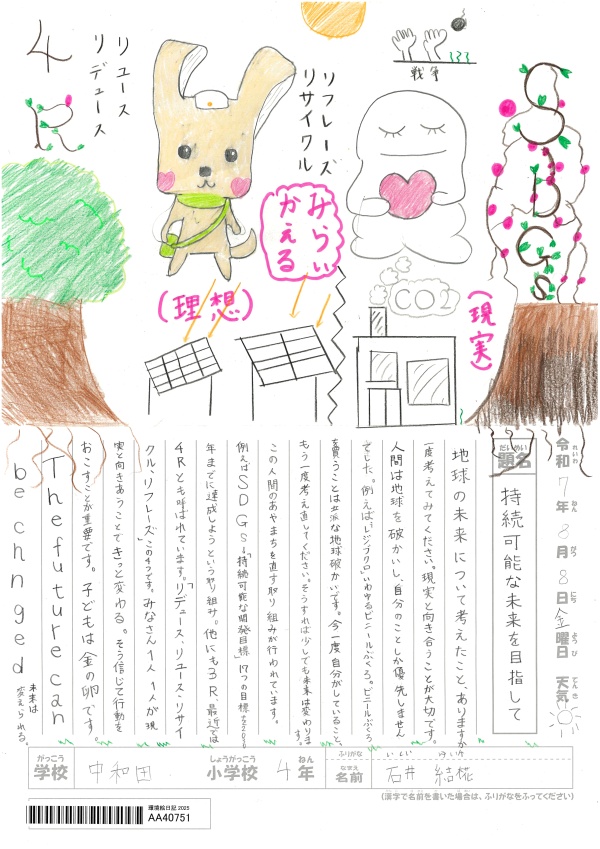 4
R
リユース
リデュース
リフレーズ
リサイクル
みらい
かえる
(理想)
戦争
CO2
(現実)
SDGs
令和7年8月8日金曜日 天気
れいわ ねん がつ にち ようび てんき
だいめい
題名
持続可能な未来を目指して
地球の未来について考えたこと、ありますか
一度考えてみてください。現実と向き合うことが大切です。
人間は地球を破かいし、自分のことしか優先しません
でした。例えば“レジブクロ”いわゆるビニールぶくろ。ビニールぶくろ
を買うことは立派な地球破かいです。今一度自分がしていること、
もう一度考え直してください。そうすれば少しでも未来は変わります。
この人間のあやまちを直す取り組みが行われています。
例えばSDGs→「持続可能な開発目標」17つの目標を2030
年までに達成しようという取り組み。他にも3R、最近では
4Rとも呼ばれています。「リデュース、リユース、リサイ
クル、リフレーズ」この4つです。みなさん1人1人が現
実と向きあうことできっと変わる。そう信じて行動を
おこすことが重要です。子どもは金の卵です。
The future can
be chnged
未来は
変えられる。
がっこう
学校
中和田
しょうがっこう
小学校
4
ねん
年
ふりがな
いしい ゆいか
なまえ
名前
石井 結椛
(漢字で名前を書いた場合は、ふりがなをふってください)
環境絵日記 2025
AA40751